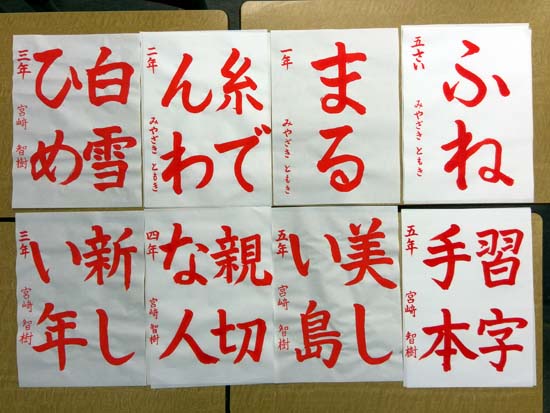 ふね
五さい みやざき ともき
まる
一年 みやざき ともき
糸で
んわ
二年 みやざき ともき
白雪
ひめ
三年 宮﨑 智樹
習字
手本
五年 宮﨑 智樹
美し
い島
五年 宮﨑 智樹
親切
な人
四年 宮﨑 智樹
新し
い年
三年 宮﨑 智樹